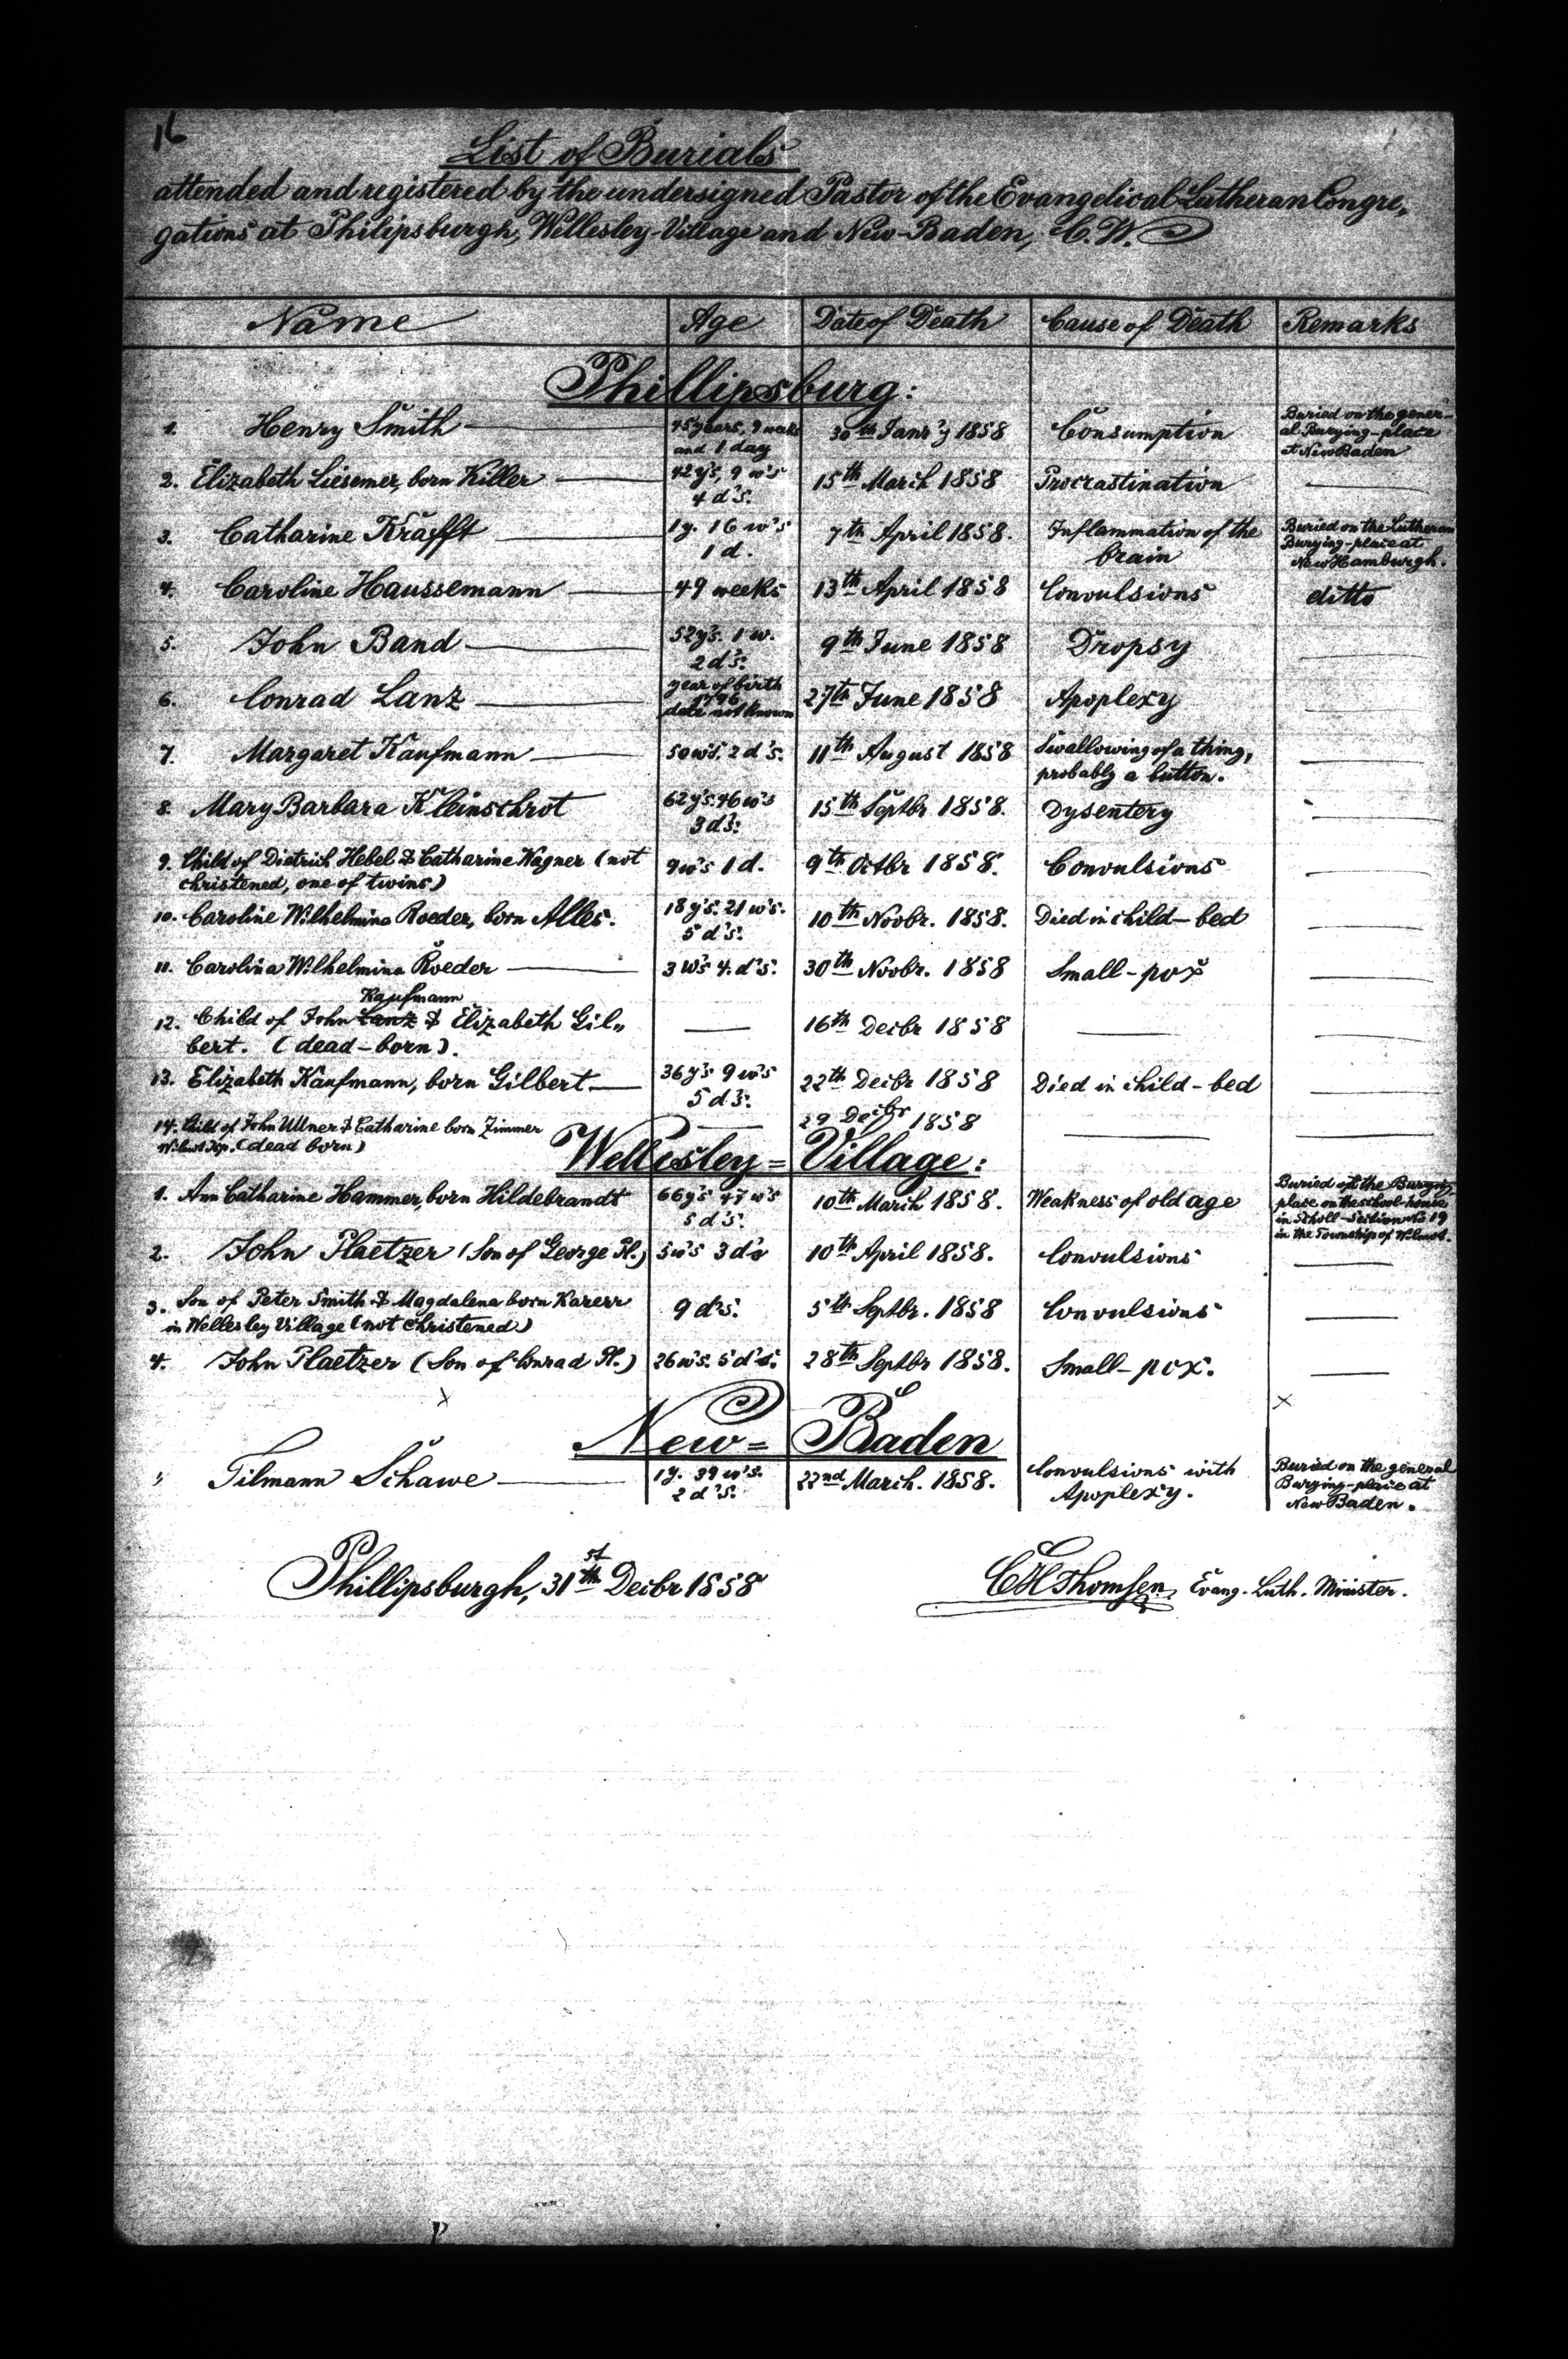 16
List of Burials
attended and registered by the undersigned Pastor of the Evangelical Lutheran Congre„
gations at Philipsburgh, Wellesley-Village and New-Baden, C.W.
Name Age Date of Death Cause of Death Remarks
Phillipsburg:
1. Henry Smith 45 years, 9 weeks and 1 day 30th Janr'y 1858 Consumption Buried on the gener-
al Burying-place
at New Baden
2. Elizabeth Liesemer, born Killer 42 y's, 9 w's 4 d's. 15th March 1858 Procrastination
3. Catharine Krafft 1 y. 16 w's 1 d. 7th April 1858. Inflammation of the brain Buried on the Lutheran
Burying-place at
New Hamburgh.
4. Caroline Haussemann 49 weeks 13th April 1858 Convulsions ditto
5. John Band 52 y's. 1 w. 2 d's. 9th June 1858 Dropsy
6. Conrad Lanz year of birth 1796 date not known 27th June 1858 Apoplexy
7. Margaret Kaufmann 50 w's. 2 d's. 11th August 1858 Swallowing of a thing,
probably a button.
8. Mary Barbara Kleinschrot 62 y's. 46 w's 3 d's. 15th Septbr 1858. Dysentery
9. Child of Dietrich Hebel & Catharine Wagner (not
christened, one of twins) 9 w's 1 d. 9th Octbr 1858. Convulsions
10. Caroline Wilhelmina Roeder, born Alles. 18 y's. 21 w's. 5 d's. 10th Novbr. 1858. Died in child-bed
11. Carolina Wilhelmina Roeder 3 w's 4. d's. 30th Novbr. 1858 Small-pox
Kaufmann
12. Child of John Lanz & Elizabeth Gil„
bert. (dead-born). 16th Decbr 1858
13. Elizabeth Kaufmann, born Gilbert 36 y's 9 w's 5 d's. 22th Decbr 1858 Died in child-bed
14. Child of John Ullner & Catharine born Zimmer
Wilmot Tsp. (dead born) 29 Decbr 1858
Wellesley=Village:
1. Ann Catharine Hammer, born Hildebrandt 66 y's 47 w's 5 d's. 10th March 1858. Weakness of old age Buried at the Burying-
place on the school-house
in Scholl-Section No 19
in the Township of Wilmot.
2. John Plaetzer (Son of George Pl.) 5 w's 3 d's 10th April 1858. Convulsions
3. Son of Peter Smith & Magdalena born Karerr
in Wellesley Village (not christened) 9 d's. 5th Septbr. 1858 Convulsions
4. John Plaetzer (Son of Conrad Pl.) 26 w's. 5 d's. 28th Septbr 1858. Small-pox.
x x
New=Baden
„ Tilmann Schawe 1 y. 39 w's. 2 d's. 22nd March. 1858. Convulsions with
Apoplexy. Buried on the general
Burying-place at
New Baden.
Phillipsburgh, 31st th Decbr 1858 CH Thomsen, Evang. Luth. Minister.